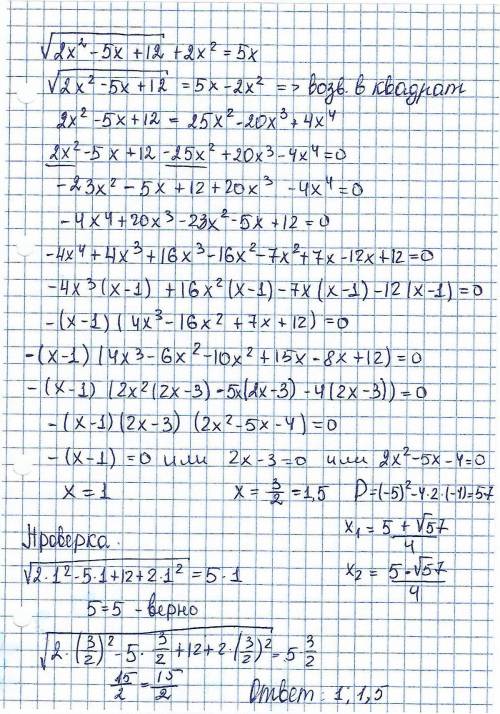 √(2x² - 5x + 12) + 2x² = 5x
√(2x² - 5x + 12) = 5x - 2x² => возв. в квадрат
2x² - 5x + 12 = 25x² - 20x³ + 4x⁴
2x² - 5x + 12 - 25x² + 20x³ - 4x⁴ = 0
- 23x² - 5x + 12 + 20x³ - 4x⁴ = 0
- 4x⁴ + 20x³ - 23x² - 5x + 12 = 0
- 4x⁴ + 4x³ + 16x³ - 16x² - 7x² + 7x - 12x + 12 = 0
- 4x³(x-1) + 16x²(x-1) - 7x(x-1) - 12(x-1) = 0
- (x-1)(4x³ - 16x² + 7x + 12) = 0
- (x-1)(4x³ - 6x² - 10x² + 15x - 8x + 12) = 0
- (x-1)(2x²(2x-3) - 5x(2x-3) - 4(2x-3)) = 0
- (x-1)(2x-3)(2x² - 5x - 4) = 0
- (x-1) = 0 или 2x - 3 = 0 или 2x² - 5x - 4 = 0
x = 1 x = 3/2 = 1,5 D = (-5)² - 4·2·(-4) = 57
x₁ = (5 + √57)/4
x₂ = (5 - √57)/4
Проверка.
√(2·1² - 5·1 + 12 + 2·1²) = 5·1
5 = 5 - верно
√(2·(3/2)² - 5·3/2 + 12 + 2·(3/2)²) = 5 3/2
15/2 = 15/2 Ответ: 1, 1,5